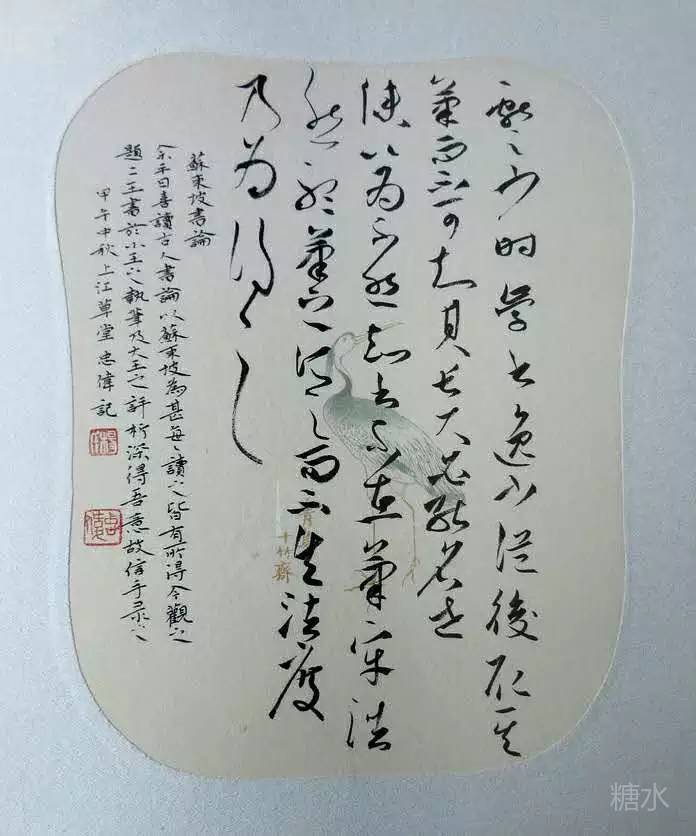 獻之少時學書逸少從後取其
筆而不可知其長大必能名世
僕以為不然知書不在筆牢浩
然聽筆之所之而不失法度
乃為得之
蘇東坡書論
余平日喜讀古人書論以蘇東坡為甚每每讀之皆有所得今觀之
題二王書於小王之執筆及大王之評析深得吾意故信手录之
甲午中秋上江草堂忠偉記
十竹齋
糖水